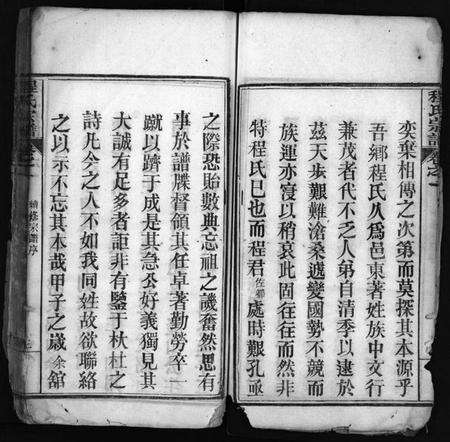 程氏宗譜 卷之一
奕棄相傳之次第而莫探其本源乎
吾鄉程氏久為邑東著姓族中文行
兼茂者代不乏人第自清季以逮於
茲天步艱難滄桑遞變國勢不競而
族運亦寖以稍衰此固往往而然非
特程氏巳也而程君佐卿處時艱孔亟
之際恐貽數典忘祖之譏奮然思有
事於譜牒督領其任卓著勤勞卒一
蹴以躋于成是其急公好義獨見其
大誠有足多者詎非有鑒于杕杜之
詩凡今之人不如我同姓故欲聯絡
之以示不忘其本哉甲子之歲余舘
程氏宗譜 卷之一
續修宗譜序